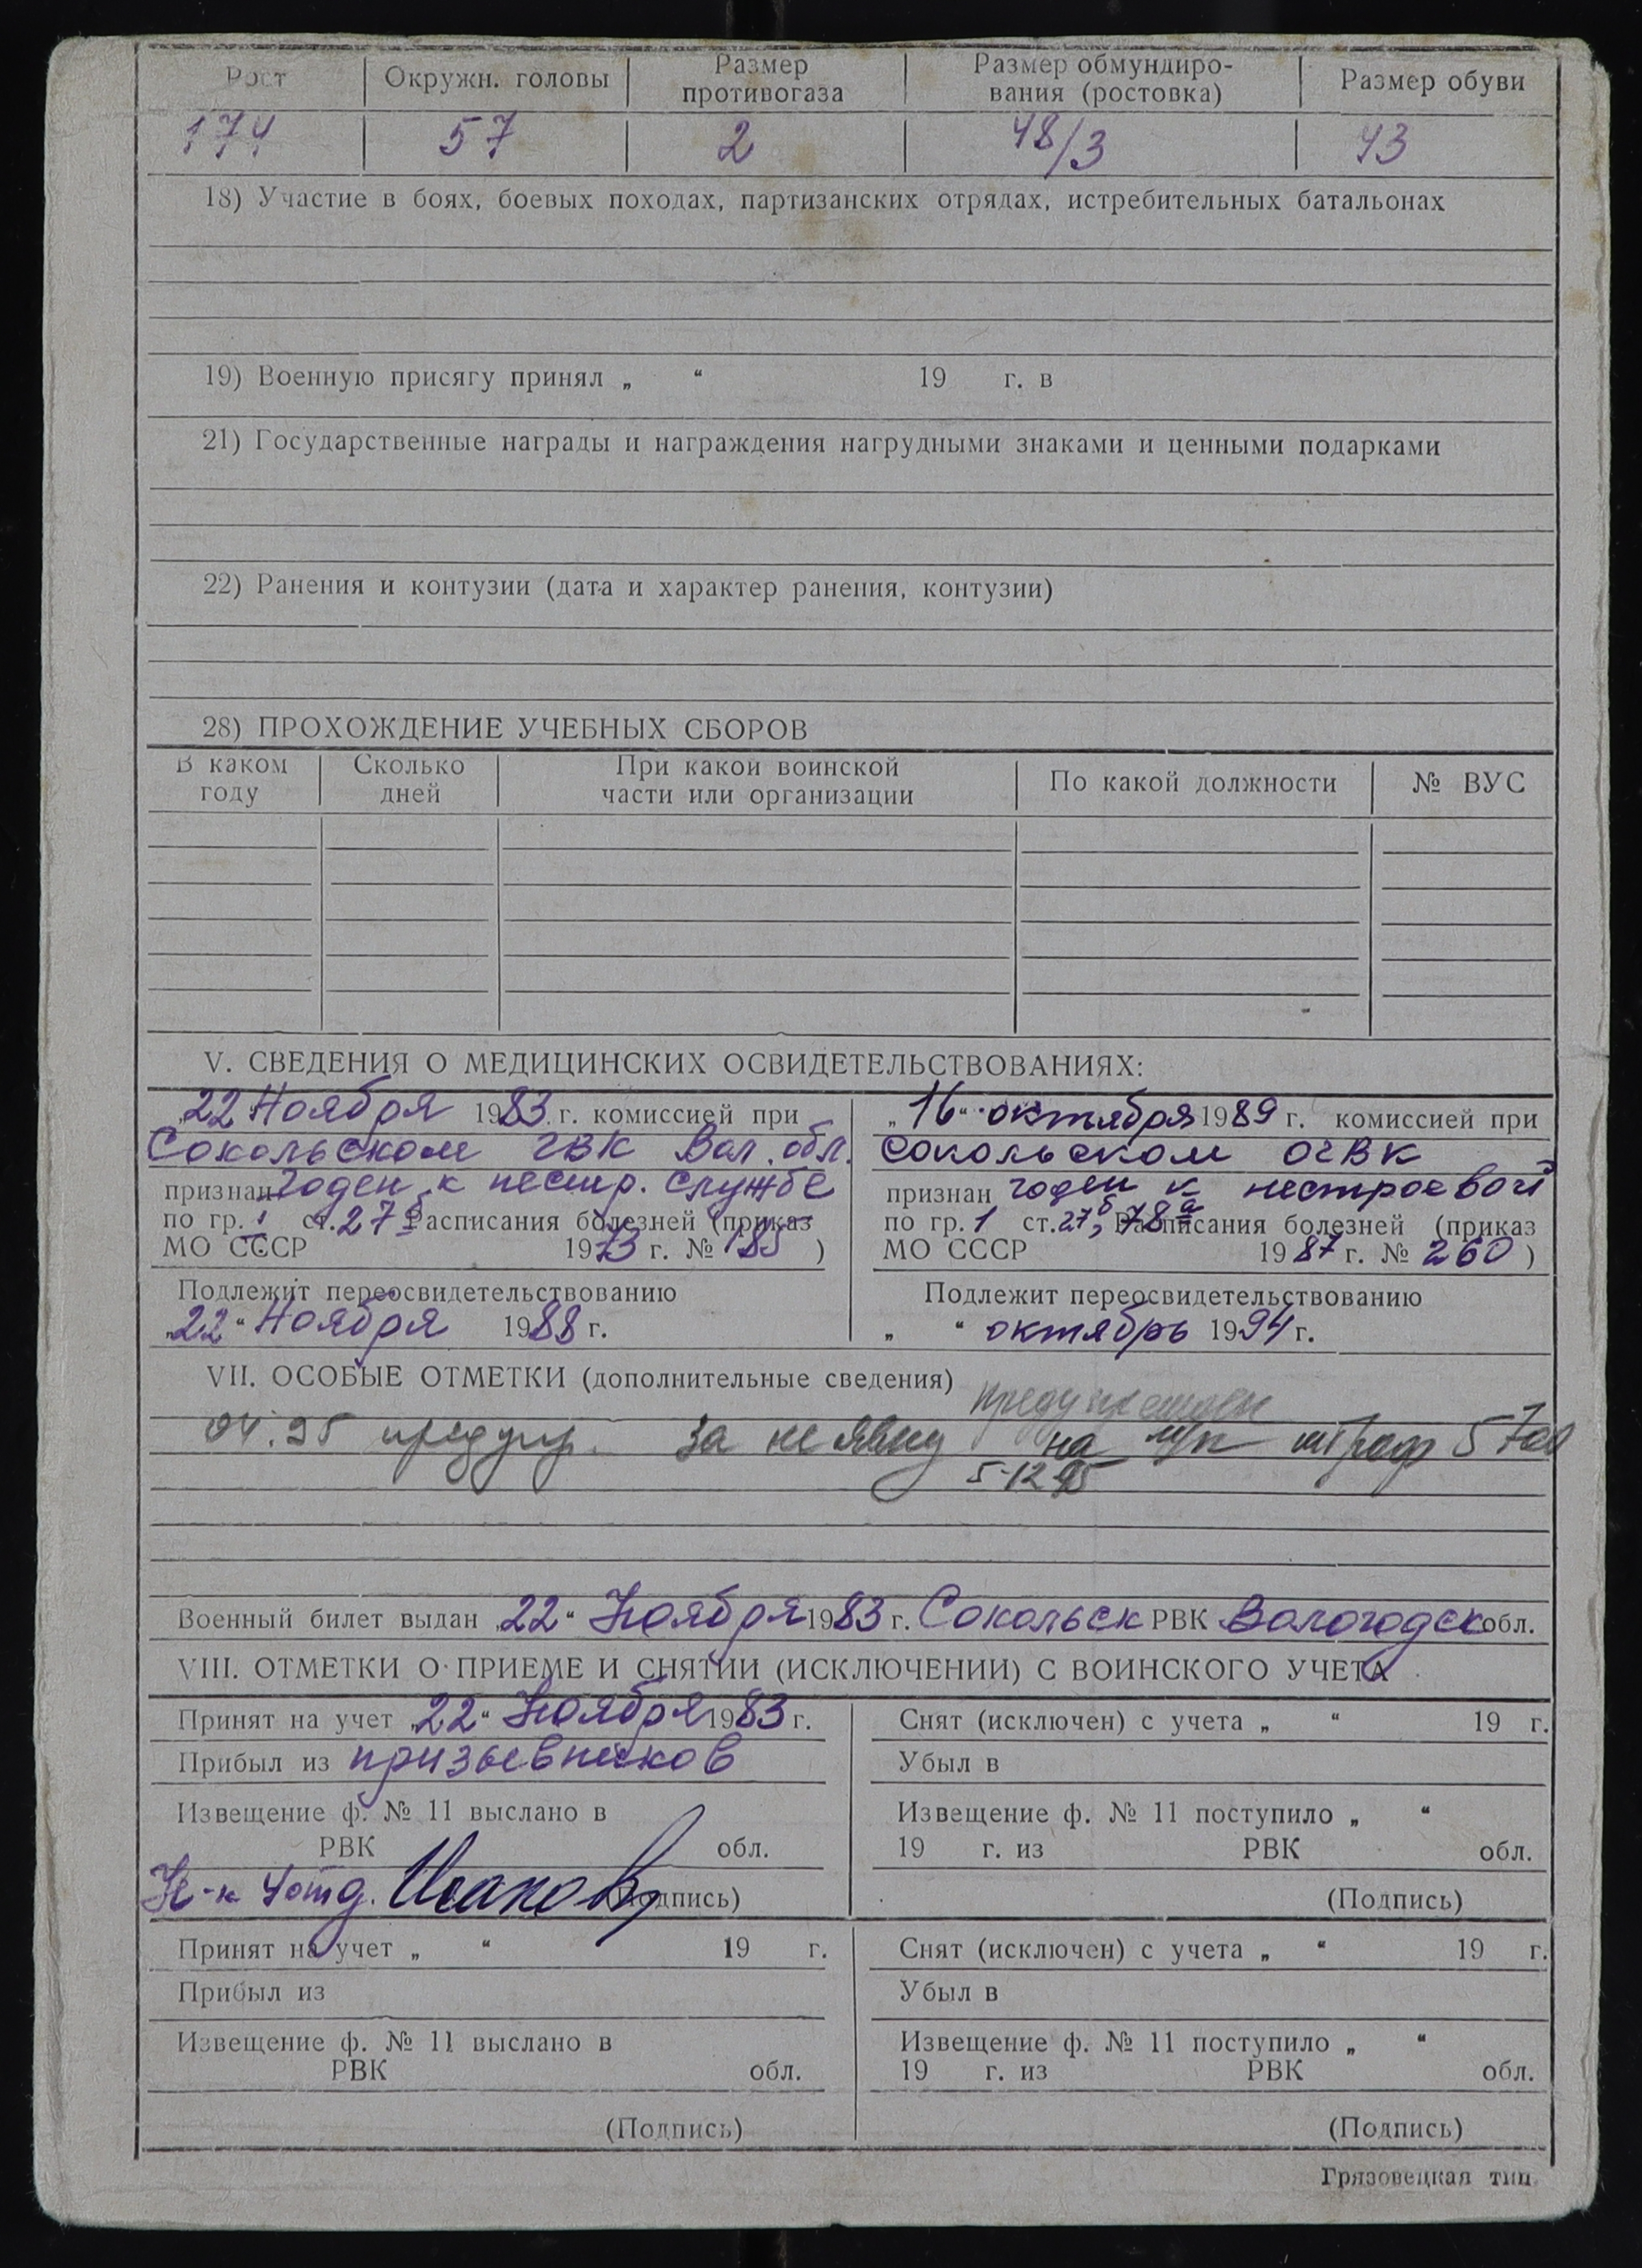 Рост Окружн. головы Размер противогаза Размер обмундирования (ростовка) Размер обуви
174 57 2 48/3 43
18) Участие в боях, боевых походах, партизанских отрядах, истребительных батальонах
19) Военную присягу принял „ “ 19 г. в
21) Государственные награды и награждения нагрудными знаками и ценными подарками
22) Ранения и контузии (дата и характер ранения, контузии)
28) ПРОХОЖДЕНИЕ УЧЕБНЫХ СБОРОВ
В каком году Сколько дней При какой воинской части или организации По какой должности № ВУС
V. СВЕДЕНИЯ О МЕДИЦИНСКИХ ОСВИДЕТЕЛЬСТВОВАНИЯХ:
„22“ Ноября 1983 г. комиссией при
Сокольском ГВК Вол. обл.
признан годен к нестр. службе
по гр. I ст. 27б Расписания болезней (приказ
МО СССР 1973 г. № 185 )
Подлежит переосвидетельствованию
„22“ Ноября 1988 г.
„16“ октября 1989 г. комиссией при
Сокольском ОГВК
признан годен к нестроевой
по гр. 1 ст. 27б, 78а Расписания болезней (приказ
МО СССР 1987 г. № 260 )
Подлежит переосвидетельствованию
„ “ октябрь 1994 г.
VII. ОСОБЫЕ ОТМЕТКИ (дополнительные сведения)
04.95 предупр. за неявку на штраф
5-12 95
Военный билет выдан „22“ Ноября 1983 г. Сокольск РВК Вологодск обл.
VIII. ОТМЕТКИ О ПРИЕМЕ И СНЯТИИ (ИСКЛЮЧЕНИИ) С ВОИНСКОГО УЧЕТА
Принят на учет „22“ Ноября 1983 г.
Прибыл из призывников
Извещение ф. № 11 выслано в
РВК обл.
Н-к 4 отд. (Подпись)
Снят (исключен) с учета „ “ 19 г.
Убыл в
Извещение ф. № 11 поступило „ “
19 г. из РВК обл.
(Подпись)
Принят на учет „ “ 19 г.
Прибыл из
Извещение ф. № 11 выслано в
РВК обл.
(Подпись)
Снят (исключен) с учета „ “ 19 г.
Убыл в
Извещение ф. № 11 поступило „ “
19 г. из РВК обл.
(Подпись)
Грязовецкая тип.